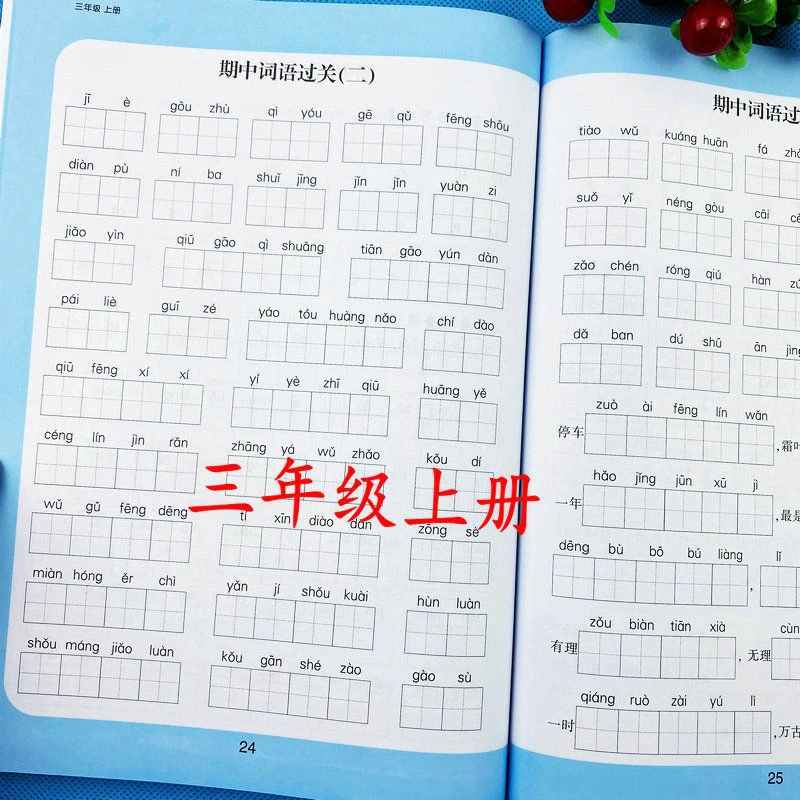 三年级 上册
期中词语过关(二)
jī è gōu zhù qì yóu gē qǔ fēng shōu
diàn pù ní ba shuǐ jīng jǐn jǐn yuàn zi
jiǎo yìn qiū gāo qì shuǎng tiān gāo yún dàn
pái liè guī zé yáo tóu huàng nǎo chí dào
qiū fēng xí xí yí yè zhī qiū huāng yě
céng lín jìn rǎn zhāng yá wǔ zhǎo kǒu dí
三年级上册
wǔ gǔ fēng dēng tí xīn diào dǎn zōng sè
miàn hóng ěr chì yǎn jí shǒu kuài hùn luàn
shǒu máng jiǎo luàn kǒu gān shé zào gào sù
24
期中词语过
tiào wǔ kuáng huān fá
suǒ yǐ néng gòu cāi
zǎo chén róng qiú hàn
dǎ ban dú shū àn
zuò ài fēng lín wǎn
停车 ,霜叶
hǎo jǐng jūn xū jì
一年 ,最是
dēng bù bō bú liàng lǐ
zǒu biàn tiān xià
有理 ,无理
qiáng ruò zài yú lì
一时 ,万古
25